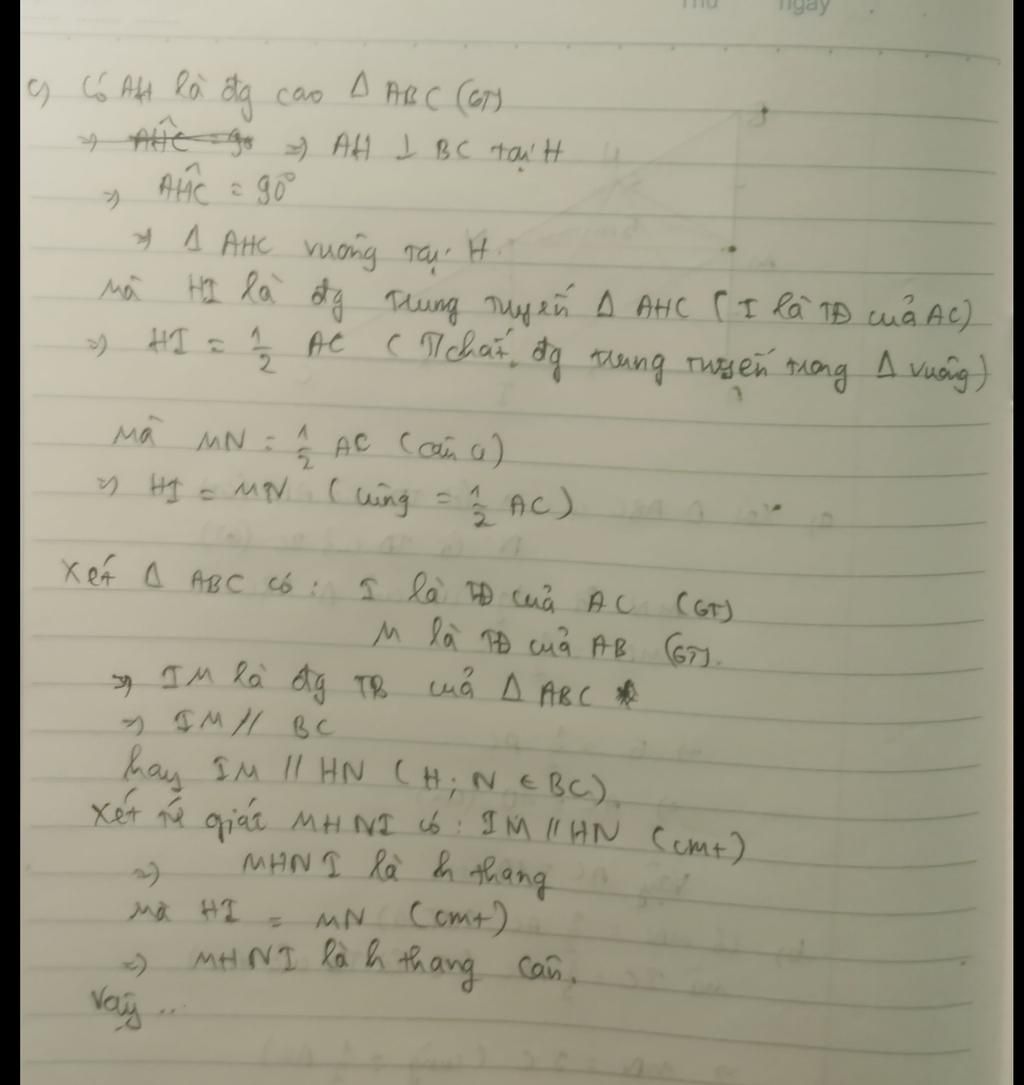 Thứ ngày
c) Có AH là đg cao Δ ABC (GT)
=> AĤC = 90 => AH ⊥ BC tại H
=> AĤC = 90°
=> Δ AHC vuông tại H
Mà HI là đg trung tuyến Δ AHC (I là TĐ của AC)
=> HI = 1/2 AC (T/chất đg trung tuyến trong Δ vuông)
Mà MN = 1/2 AC (câu a)
=> HI = MN (cùng = 1/2 AC)
Xét Δ ABC có: I là TĐ của AC (GT)
M là TĐ của AB (GT).
=> IM là đg TB của Δ ABC
=> IM // BC
hay IM // HN (H; N ∈ BC).
Xét tứ giác MHNI có: IM // HN (cmt)
=> MHNI là h thang
Mà HI = MN (cmt)
=> MHNI là h thang cân.
Vậy ...